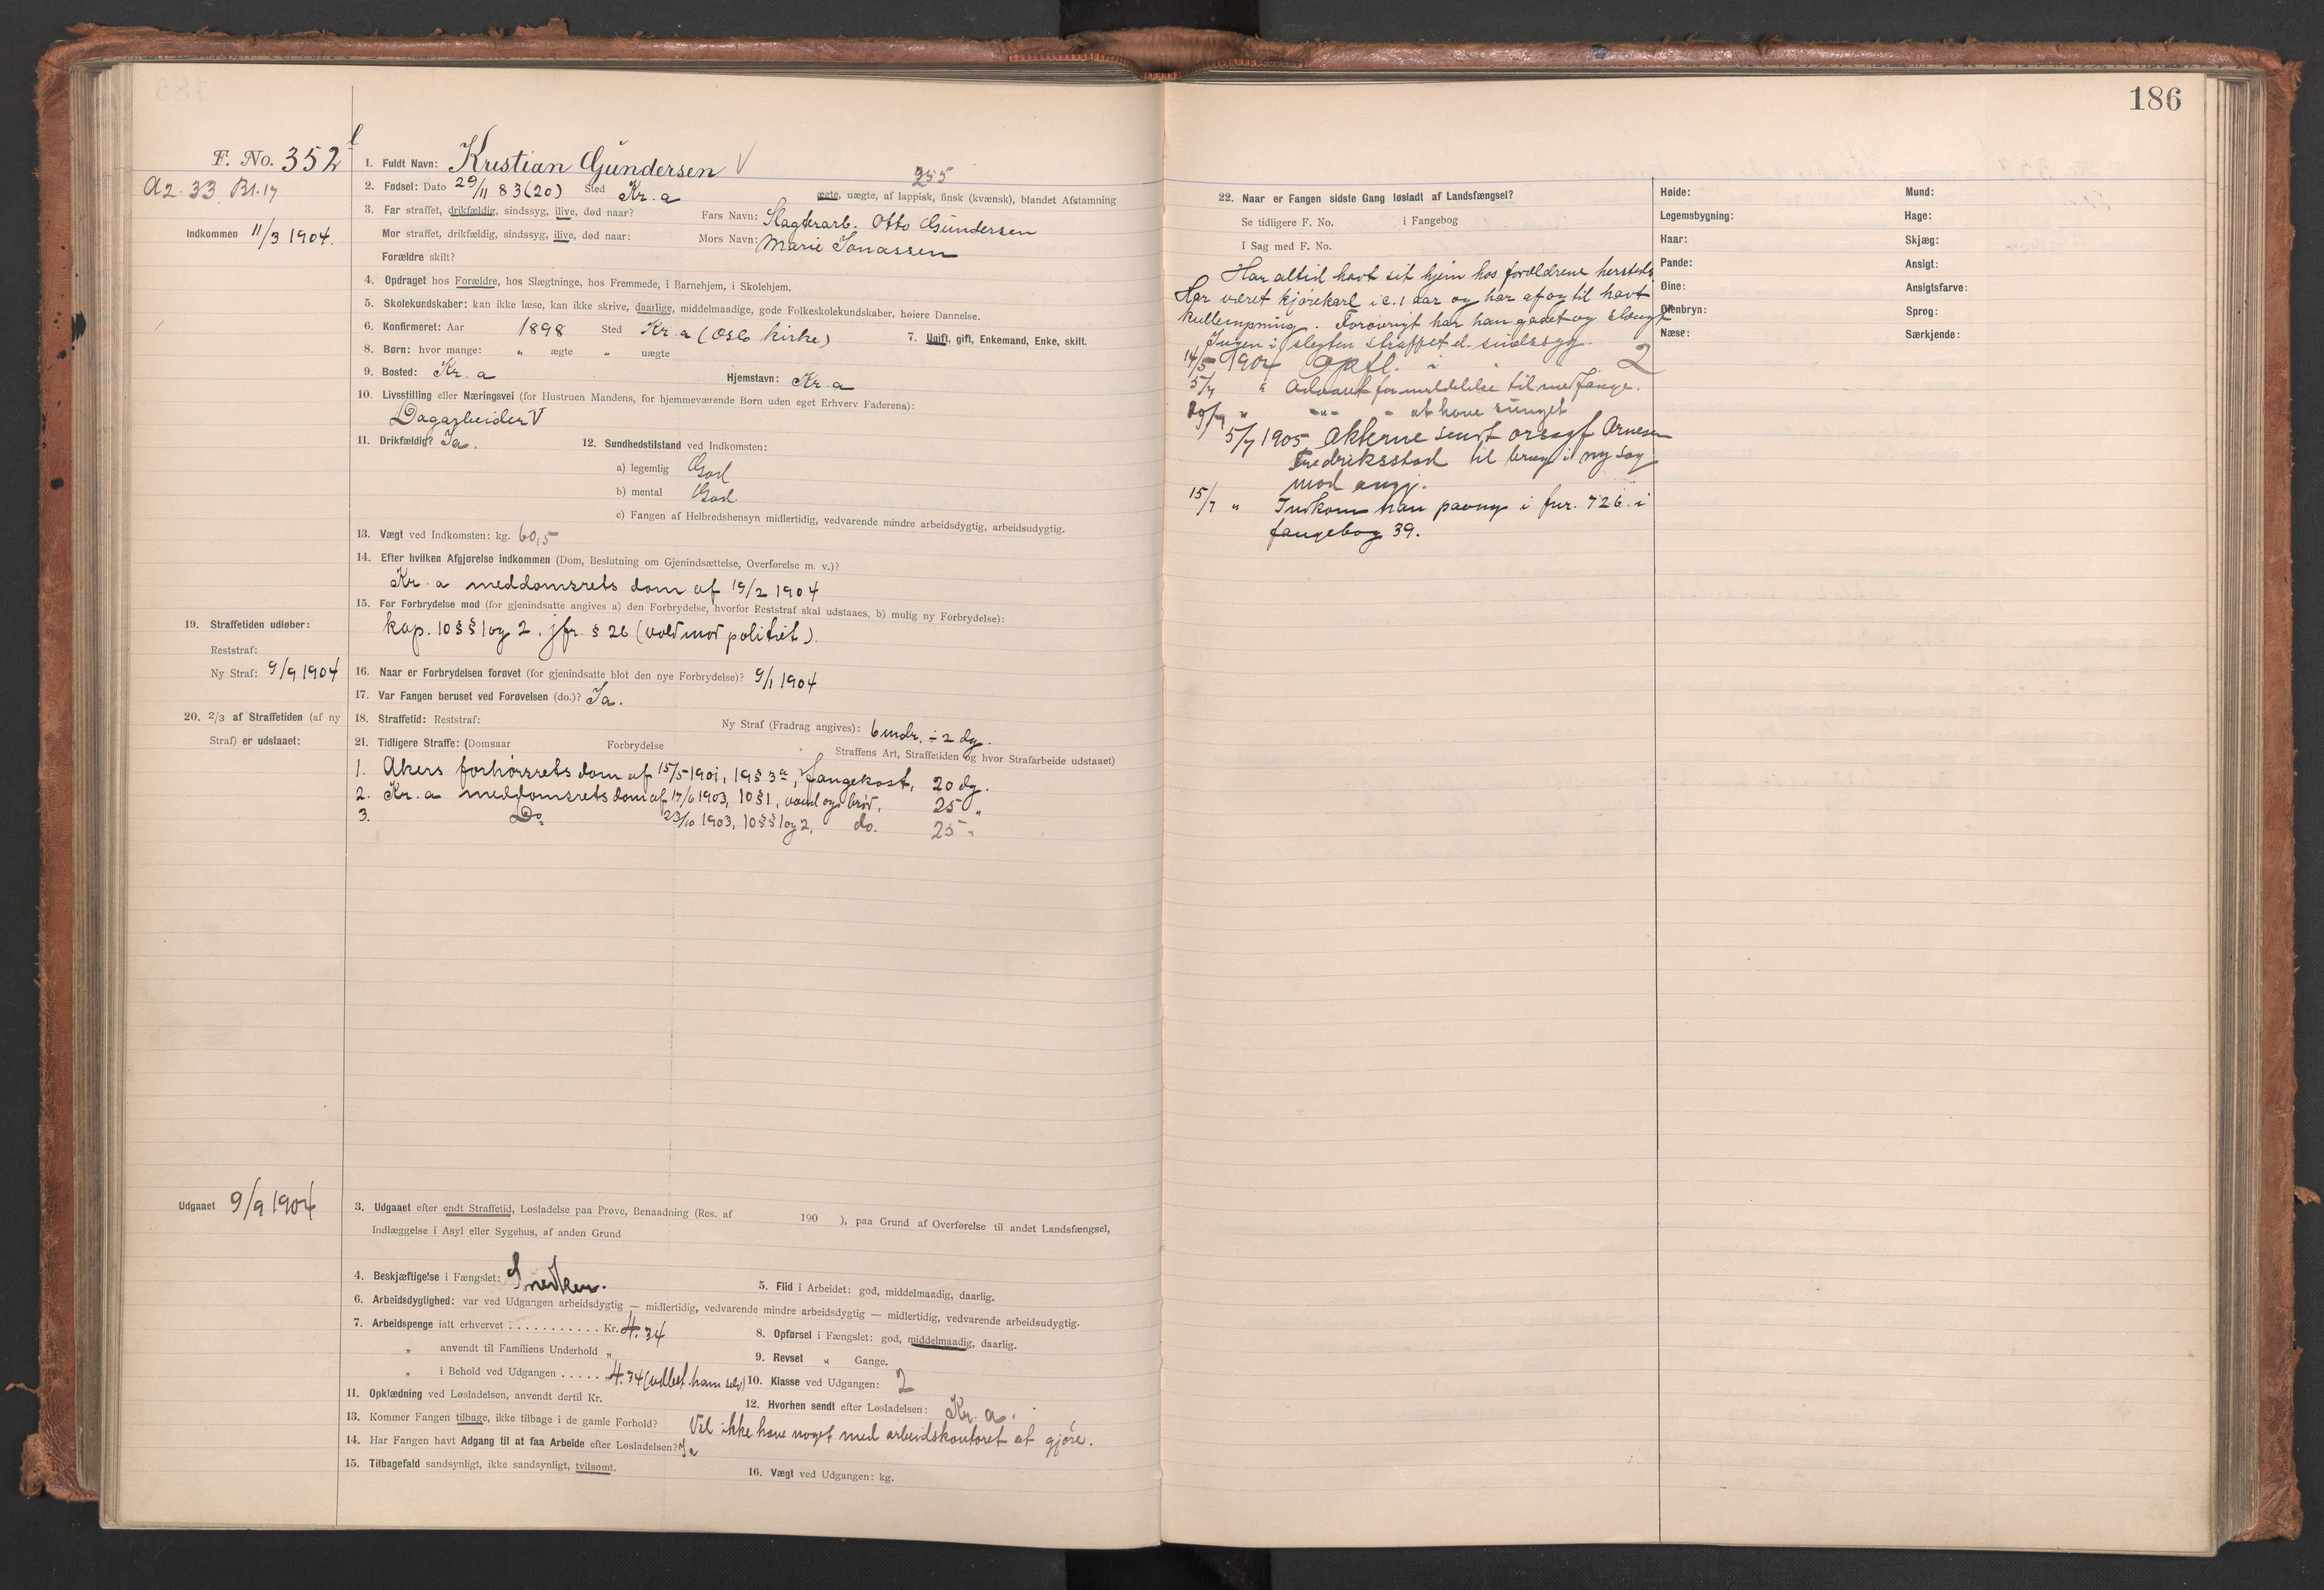 186
F. No. 352
A2. 33. Bl. 17
Indkommen 11/3 1904.
1. Fuldt Navn: Kristian Gundersen V
255
2. Fødsel: Dato 29/11 83 (20) Sted Kr.a ægte, uægte, af lappisk, finsk (kvænsk), blandet Afstamning
3. Far straffet, drikfældig, sindssyg, ilive, død naar? Fars Navn: Slagterarb. Otto Gundersen
Mor straffet, drikfældig, sindssyg, ilive, død naar: Mors Navn: Marie Jonassen
Forældre skilt?
4. Opdraget hos Forældre, hos Slægtninge, hos Fremmede, i Barnehjem, i Skolehjem.
5. Skolekundskaber: kan ikke læse, kan ikke skrive, daarlige, middelmaadige, gode Folkeskolekundskaber, høiere Dannelse.
6. Konfirmeret: Aar 1898 Sted Kr.a (Oslo kirke) 7. Ugift, gift, Enkemand, Enke, skilt.
8. Børn: hvor mange: " ægte " uægte
9. Bosted: Kr.a Hjemstavn: Kr.a
10. Livsstilling eller Næringsvei (for Hustruen Mandens, for hjemmeværende Børn uden eget Erhverv Faderens):
Dagarbeider V
11. Drikfældig? Ja. 12. Sundhedstilstand ved Indkomsten:
a) legemlig God
b) mental God
c) Fangen af Helbredshensyn midlertidig, vedvarende mindre arbeidsdygtig, arbeidsudygtig.
13. Vægt ved Indkomsten: kg. 60,5
14. Efter hvilken Afgjørelse indkommen (Dom, Beslutning om Gjenindsættelse, Overførelse m. v.)?
Kr.a meddomsrets dom af 19/2 1904
15. For Forbrydelse mod (for gjenindsatte angives a) den Forbrydelse, hvorfor Reststraf skal udstaaes, b) mulig ny Forbrydelse):
kap. 10 §§ 1 og 2, jfr. § 26 (vold mod politiet).
19. Straffetiden udløber:
Reststraf:
Ny Straf: 9/9 1904
16. Naar er Forbrydelsen forøvet (for gjenindsatte blot den nye Forbrydelse)? 9/1 1904
17. Var Fangen beruset ved Forøvelsen (do.)? Ja.
20. 2/3 af Straffetiden (af ny
Straf) er udstaaet:
18. Straffetid: Reststraf: Ny Straf (Fradrag angives): 6 mdr. ÷ 2 dg.
21. Tidligere Straffe: (Domsaar Forbrydelse Straffens Art, Straffetiden og hvor Strafarbeide udstaaet)
1. Akers forhørsrets dom af 15/5 1901, 19 § 3 a, fangekost, 20 dg.
2. Kr.a meddomsrets dom af 17/6 1903, 10 § 1, vand og brød, 25 "
3. Do 23/10 1903, 10 §§ 1 og 2, do. 25 "
Udgaaet 9/9 1904
3. Udgaaet efter endt Straffetid, Løsladelse paa Prøve, Benaadning (Res. af 190 ), paa Grund af Overførelse til andet Landsfængsel,
Indlæggelse i Asyl eller Sygehus, af anden Grund
4. Beskjæftigelse i Fængslet: Snedker. 5. Flid i Arbeidet: god, middelmaadig, daarlig.
6. Arbeidsdyglighed: var ved Udgangen arbeidsdygtig — midlertidig, vedvarende mindre arbeidsdygtig — midlertidig, vedvarende arbeidsudygtig.
7. Arbeidspenge ialt erhvervet . . . . . . . . . . . Kr. 4.34 8. Opførsel i Fængslet: god, middelmaadig, daarlig.
" anvendt til Familiens Underhold " 9. Revset " Gange.
" i Behold ved Udgangen . . . . . 4.34 (udbet. ham selv) 10. Klasse ved Udgangen: 2
11. Opklædning ved Løsladelsen, anvendt dertil Kr. 12. Hvorhen sendt efter Løsladelsen: Kr.a.
13. Kommer Fangen tilbage, ikke tilbage i de gamle Forhold? Vil ikke have noget med arbeidskontoret at gjøre.
14. Har Fangen havt Adgang til at faa Arbeide efter Løsladelsen? Ja
15. Tilbagefald sandsynligt, ikke sandsynligt, tvilsomt. 16. Vægt ved Udgangen: kg.
22. Naar er Fangen sidste Gang løsladt af Landsfængsel?
Se tidligere F. No. i Fangebog
I Sag med F. No.
Har altid havt sit hjem hos forældrene hersteds.
Har været kjørekarl i c. 1 aar og har af og til havt
kullempning. Forøvrigt har han gaaet og slængt
Ingen i slegten straffet el. sindssyg.
14/5 1904 Opfl. i 2
5/7 " Advaret for meddelelse til medfange.
29/7 " -"- - at have sunget
5/7 1905 Akterne sendt orsagf. Arnesen
Fredriksstad til brug i ny sag
mod angj.
15/7 " Indkom han paany i fnr. 726 i
fangebog 39.
Høide:
Legemsbygning:
Haar:
Pande:
Øine:
Øienbryn:
Næse:
Mund:
Hage:
Skjæg:
Ansigt:
Ansigtsfarve:
Sprog:
Særkjende: